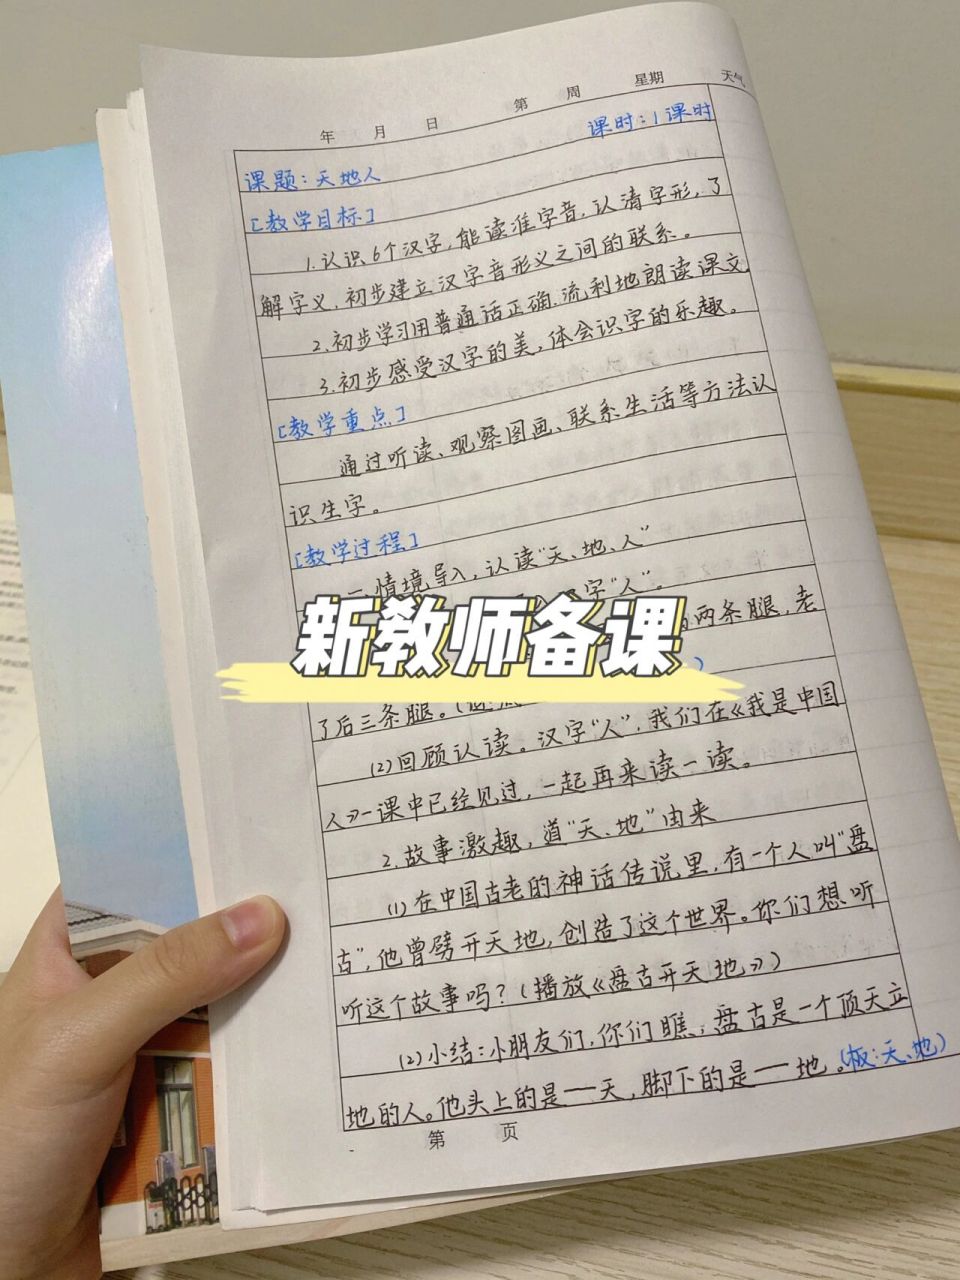 年 月 日 第 周 星期 天气
课时:1课时
课题:天地人
[教学目标]
1.认识6个汉字,能读准字音,认清字形,了
解字义,初步建立汉字音形义之间的联系。
2.初步学习用普通话正确.流利地朗读课文.
3.初步感受汉字的美,体会识字的乐趣。
[教学重点]
通过听读、观察图画、联系生活等方法认
识生字。
[教学过程]
一.情境导入,认读“天、地、人”
字“人”。
两条腿,老
新教师备课
了后三条腿。(
(2)回顾认读。汉字“人”,我们在《我是中国
人》一课中已经见过,一起再来读一读。
2.故事激趣,道“天、地”由来
(1)在中国古老的神话传说里,有一个人叫“盘
古”,他曾劈开天地,创造了这个世界。你们想听
听这个故事吗?(播放《盘古开天地》)
(2)小结:小朋友们,你们瞧,盘古是一个顶天立
地的人。他头上的是——天,脚下的是——地。(板:天、地)
第 页